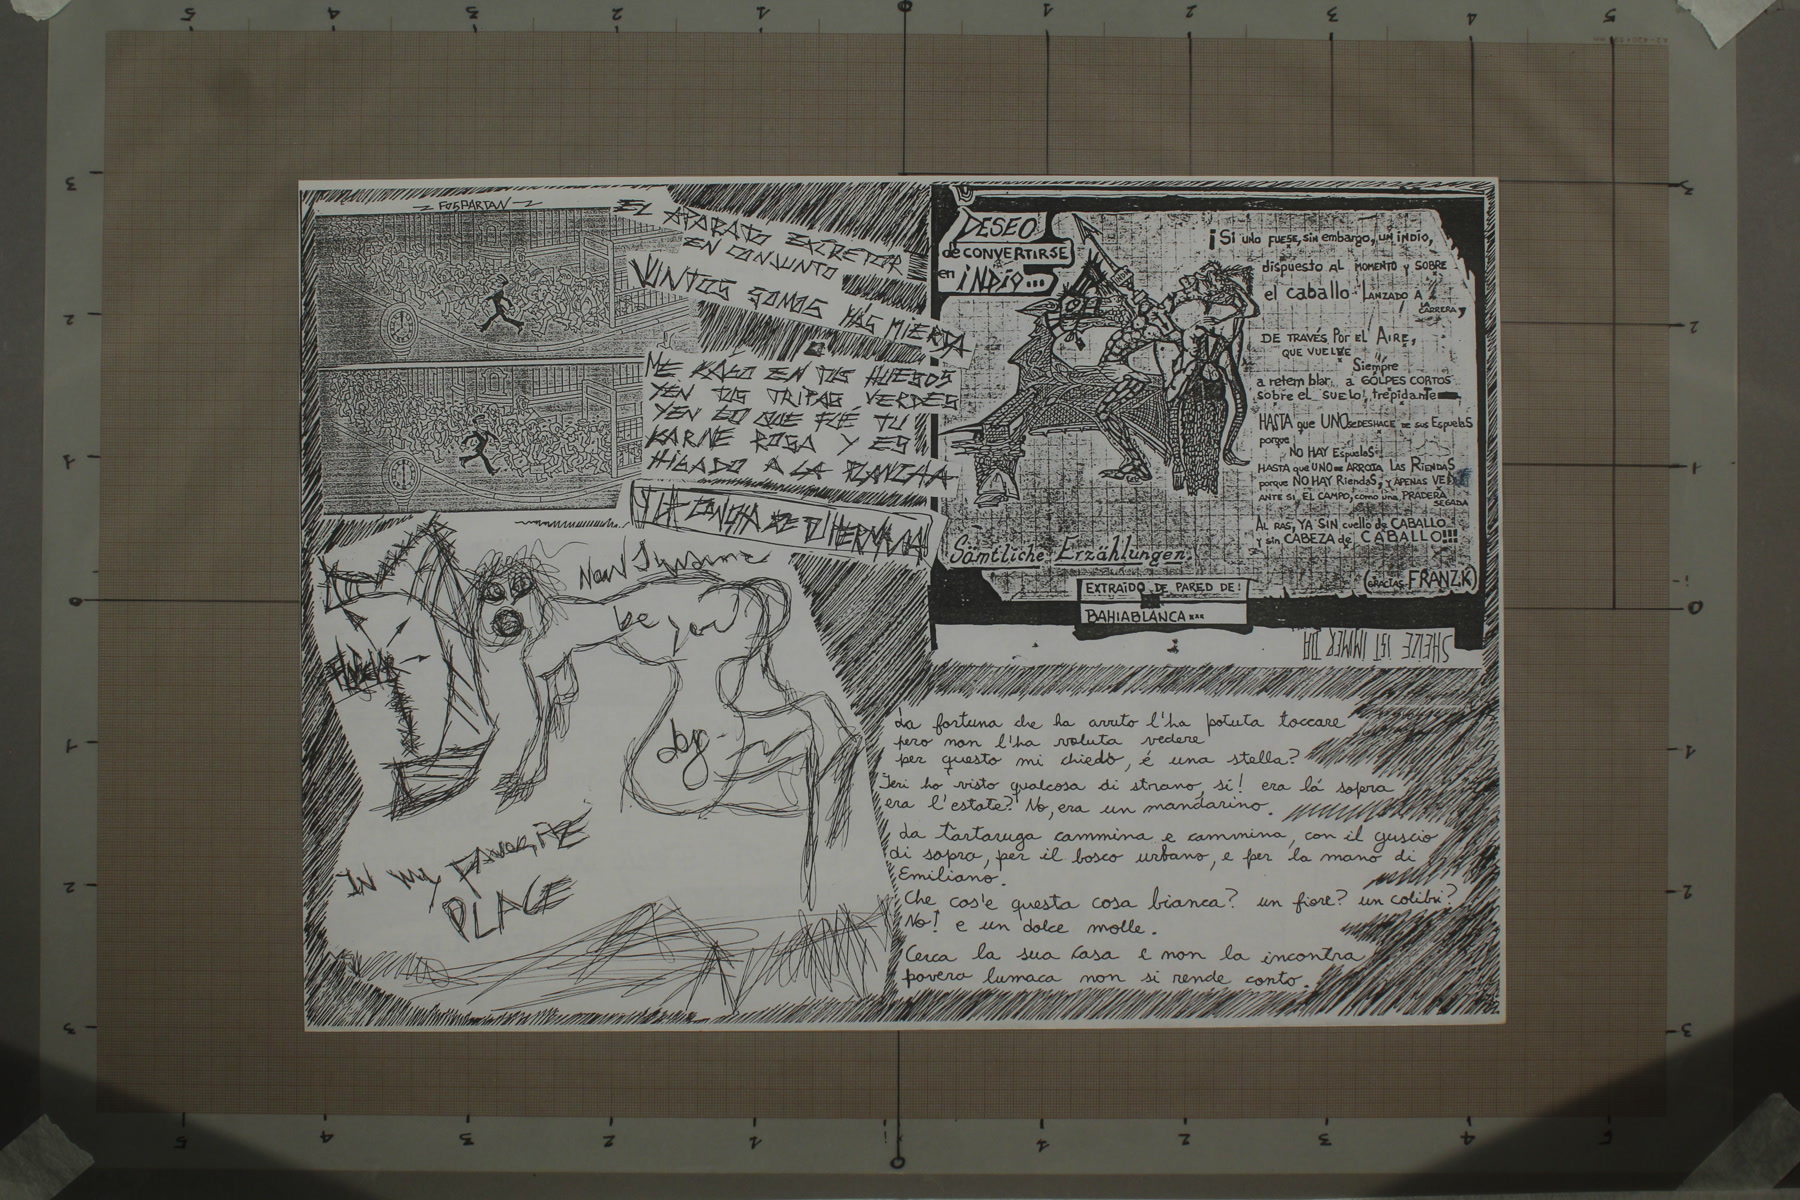 FOSPARTAN
EL APARATO EXCRETOR
EN CONJUNTO
JUNTOS SOMOS MAS MIERDA
ME KAGO EN TUS HUESOS
Y EN TUS TRIPAS VERDES
Y EN LO QUE FUÉ TU
KARNE ROSA Y ES
HIGADO A LA PLANCHA
be you
dog
IN my FAVORITE
PLACE
DESEO
de CONVERTIRSE
en INDIO...
¡Si UNO FUESE, SIN embargo, UN INDIO,
dispuesto AL MOMENTO y SOBRE
el caballo LANZADO A LA CARRERA,
DE TRAVÉS Por EL AIRE,
QUE VUELVE
Siempre
a retemblar a GOLPES CORTOS
sobre el suelo trepidante
HASTA que UNO SE DESHACE de sus EspuelaS
porque
NO HAY EspuelaS!
HASTA que UNO SE ARROJA LAS RIENDAS
porque NO HAY RiendaS, y APENAS VE
ANTE SI, EL CAMPO, como una PRADERA
SEGADA
AL RAS, YA SIN cuello de CABALLO
y sin CABEZA de CABALLO!!!
Sämtliche Erzählungen.
(GRACIAS FRANZ.K)
EXTRAIDO DE PARED DE:
BAHIABLANCA...
SHEIZE IST IMMER DA
La fortuna che ha avuto l'ha potuta toccare
pero non l'ha voluta vedere
per questo mi chiedo, é una stella?
Ieri ho visto qualcosa di strano, si! era lá sopera
era l'estate? No, era un mandarino.
La tartaruga cammina e cammina, con il guscio
di sopra, per il bosco urbano, e per la mano di
Emiliano.
Che cos'e questa cosa bianca? un fiore? un colibri?
No! e un dolce molle.
Cerca la sua casa e non la incontra
povera lumaca non si rende conto.